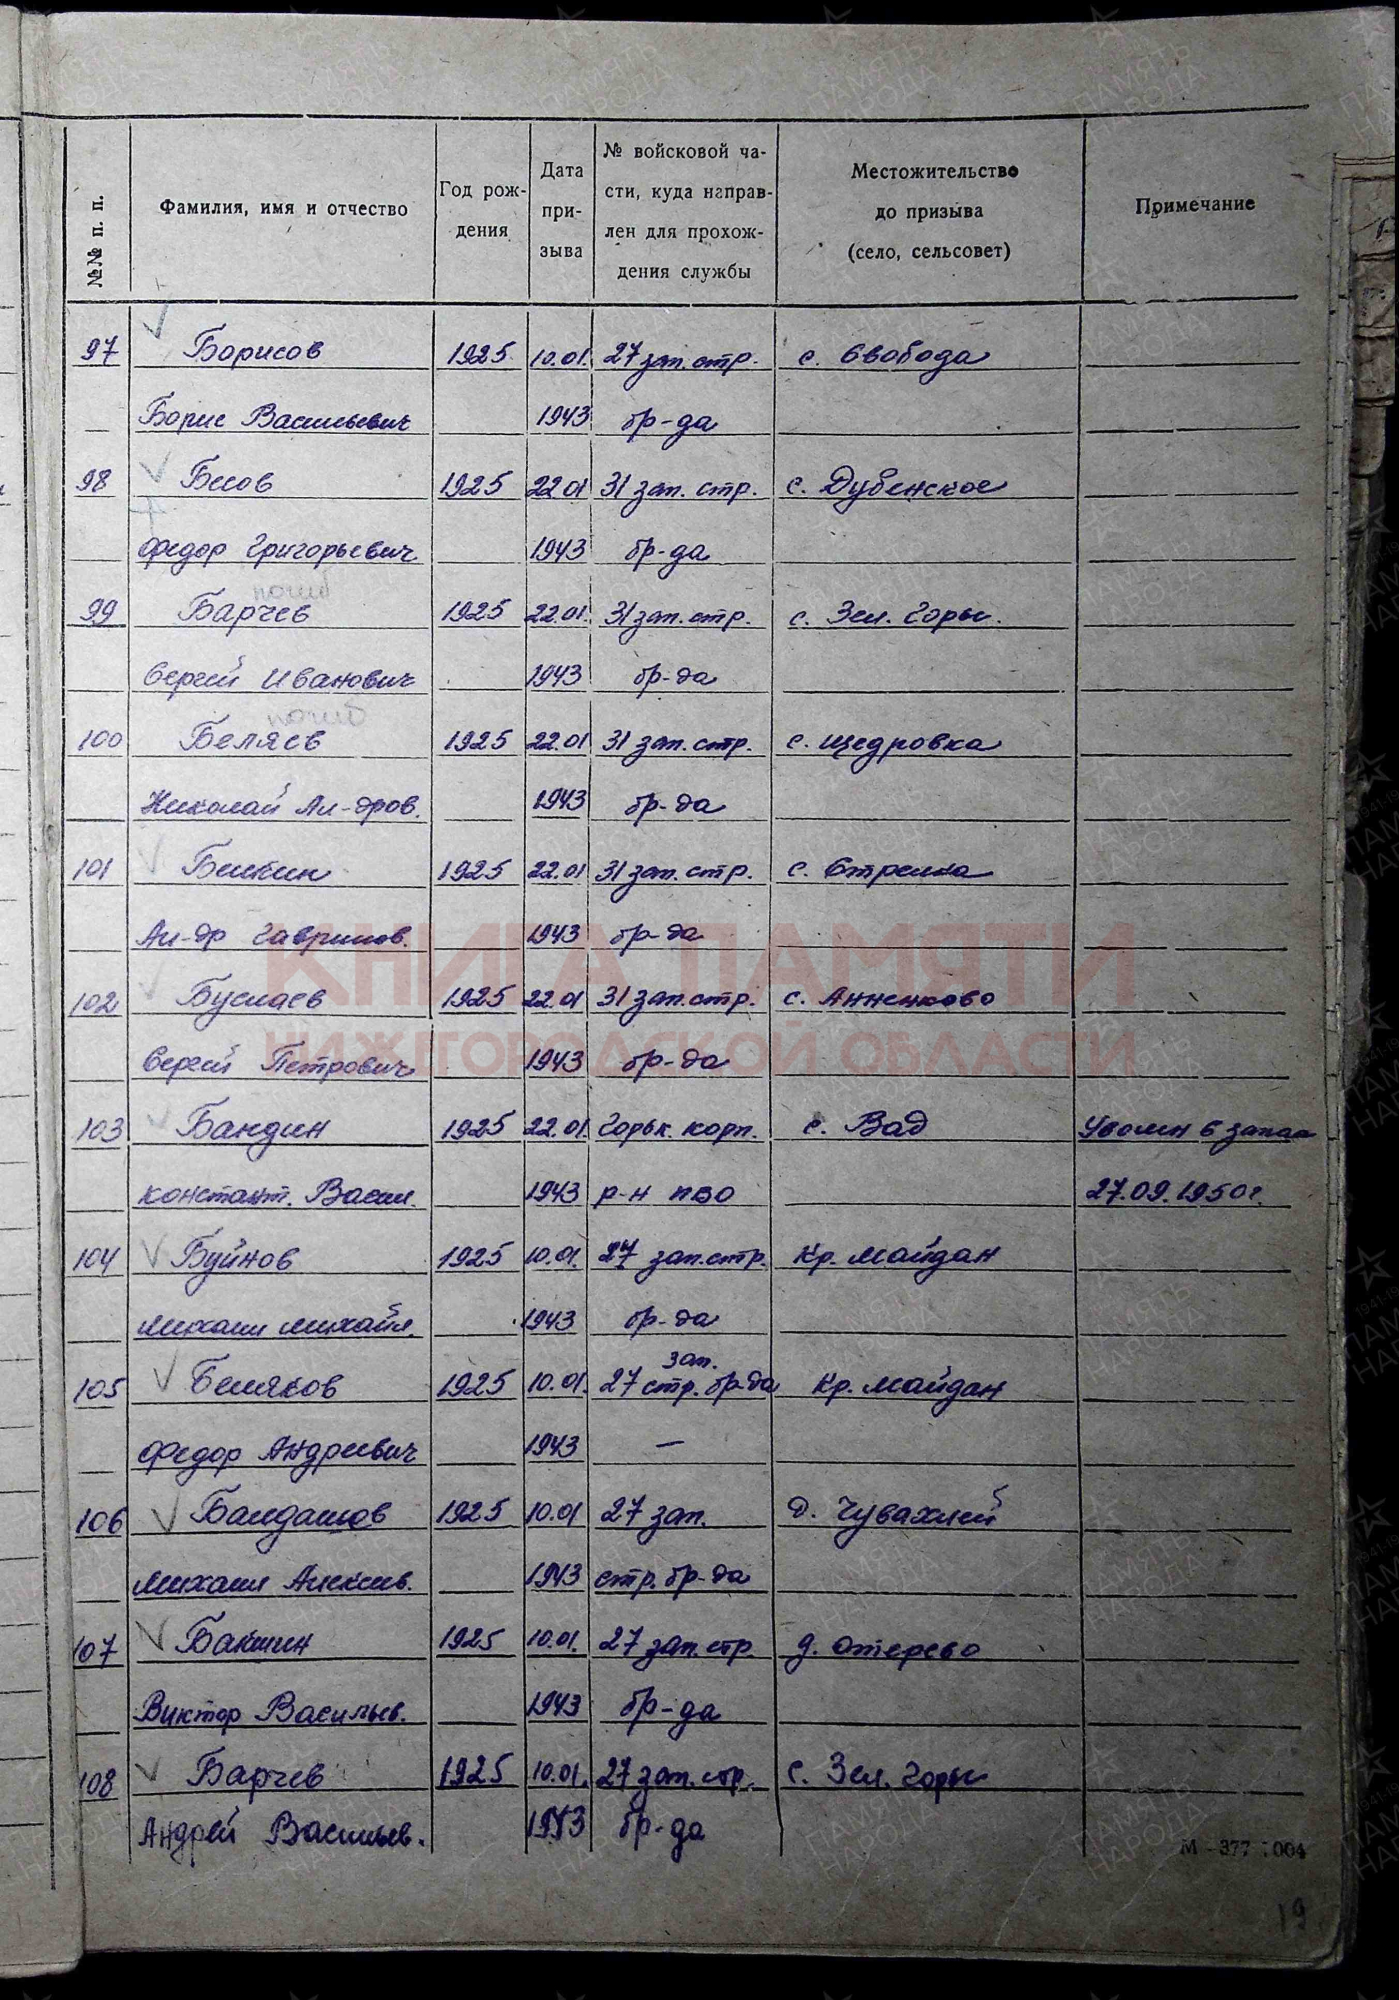 №№ п. п.
Фамилия, имя и отчество
Год рож-
дения
Дата
при-
зыва
№ войсковой ча-
сти, куда направ-
лен для прохож-
дения службы
Местожительство
до призыва
(село, сельсовет)
Примечание
97 Борисов 1925 10.01. 27 зап. стр. с. Свобода
Борис Васильевич 1943 бр-да
98 Бесов 1925 22.01 31 зап. стр. с. Дубенское
Федор Григорьевич 1943 бр-да
погиб
99 Барчев 1925 22.01. 31 зап. стр. с. Зел. Горы.
Сергей Иванович 1943 бр-да
погиб
100 Беляев 1925 22.01 31 зап. стр. с. Щедровка
Николай Ал-дров. 1943 бр-да
101 1925 22.01 31 зап. стр. с. Стрелка
Ал-др Гаврилов. 1943 бр-да
102 Буслаев 1925 22.01 31 зап. стр. с. Анненково
Сергей Петрович 1943 бр-да
103 Бандин 1925 22.01. Горьк. корп. с. Вад Уволен в запас
Констант. Васил. 1943 р-н ПВО 27.09.1950г.
104 Буйнов 1925 10.01. 27 зап. стр. Кр. Майдан
Михаил Михайл. 1943 бр-да
зап.
105 Беляков 1925 10.01. 27 стр. бр-да Кр. Майдан
Федор Андреевич 1943 —
106 Балдашов 1925 10.01 27 зап. д. Чувахлей
Михаил Алексеев. 1943 стр. бр-да
107 Бакшин 1925 10.01. 27 зап. стр. д. Отерево
Виктор Васильев. 1943 бр-да
108 Барчев 1925 10.01. 27 зап. стр. с. Зел. Горы
Андрей Васильев. 1943 бр-да
М-377 1004
19
КНИГА ПАМЯТИ
НИЖЕГОРОДСКОЙ ОБЛАСТИ
ПАМЯТЬ
НАРОДА